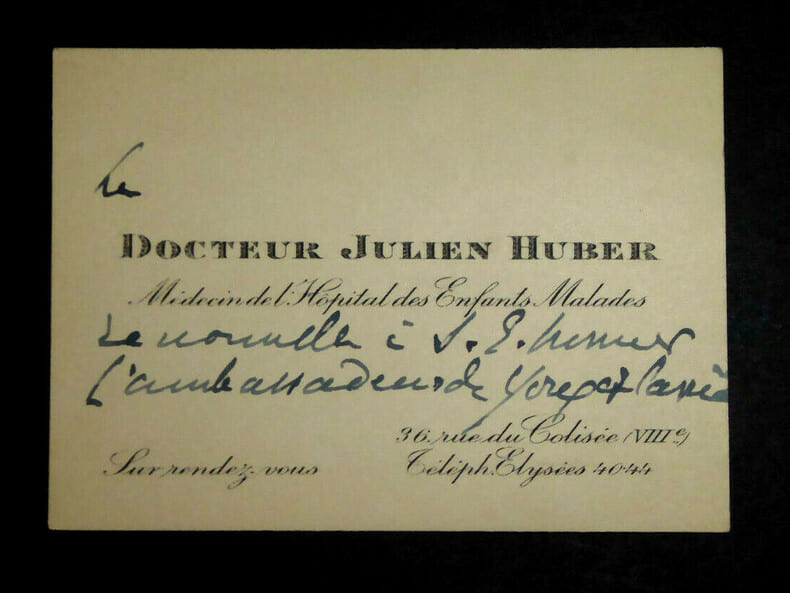 Le
DOCTEUR JULIEN HUBER
Médecin de l'Hôpital des Enfants Malades
renouvelle à S. E. Monsieur
l'ambassadeur de Yougoslavie
36, rue du Colisée (VIIIe)
Sur rendez-vous Téléph. Elysées 40-44